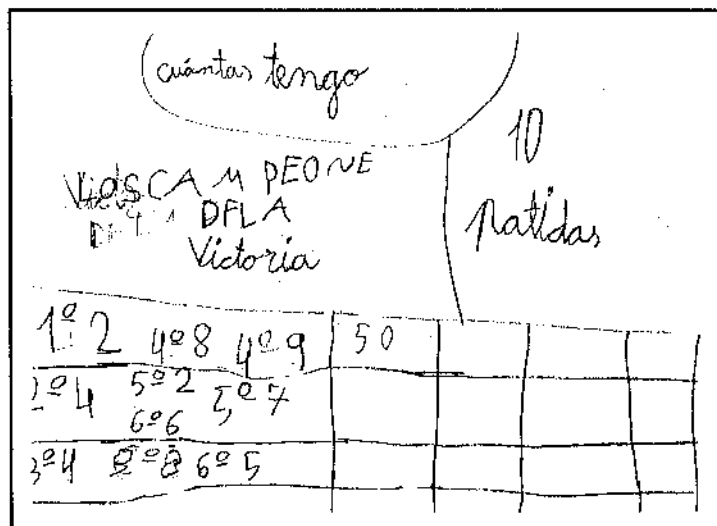 cuántas tengo
10
patidas
LOSCAMPEONE
DFLA
Victoria
1º 2 4º 8 4º 9 50
2º 4 5º 2 5º 7
6º 6
3º 4 8º 8 6º 5